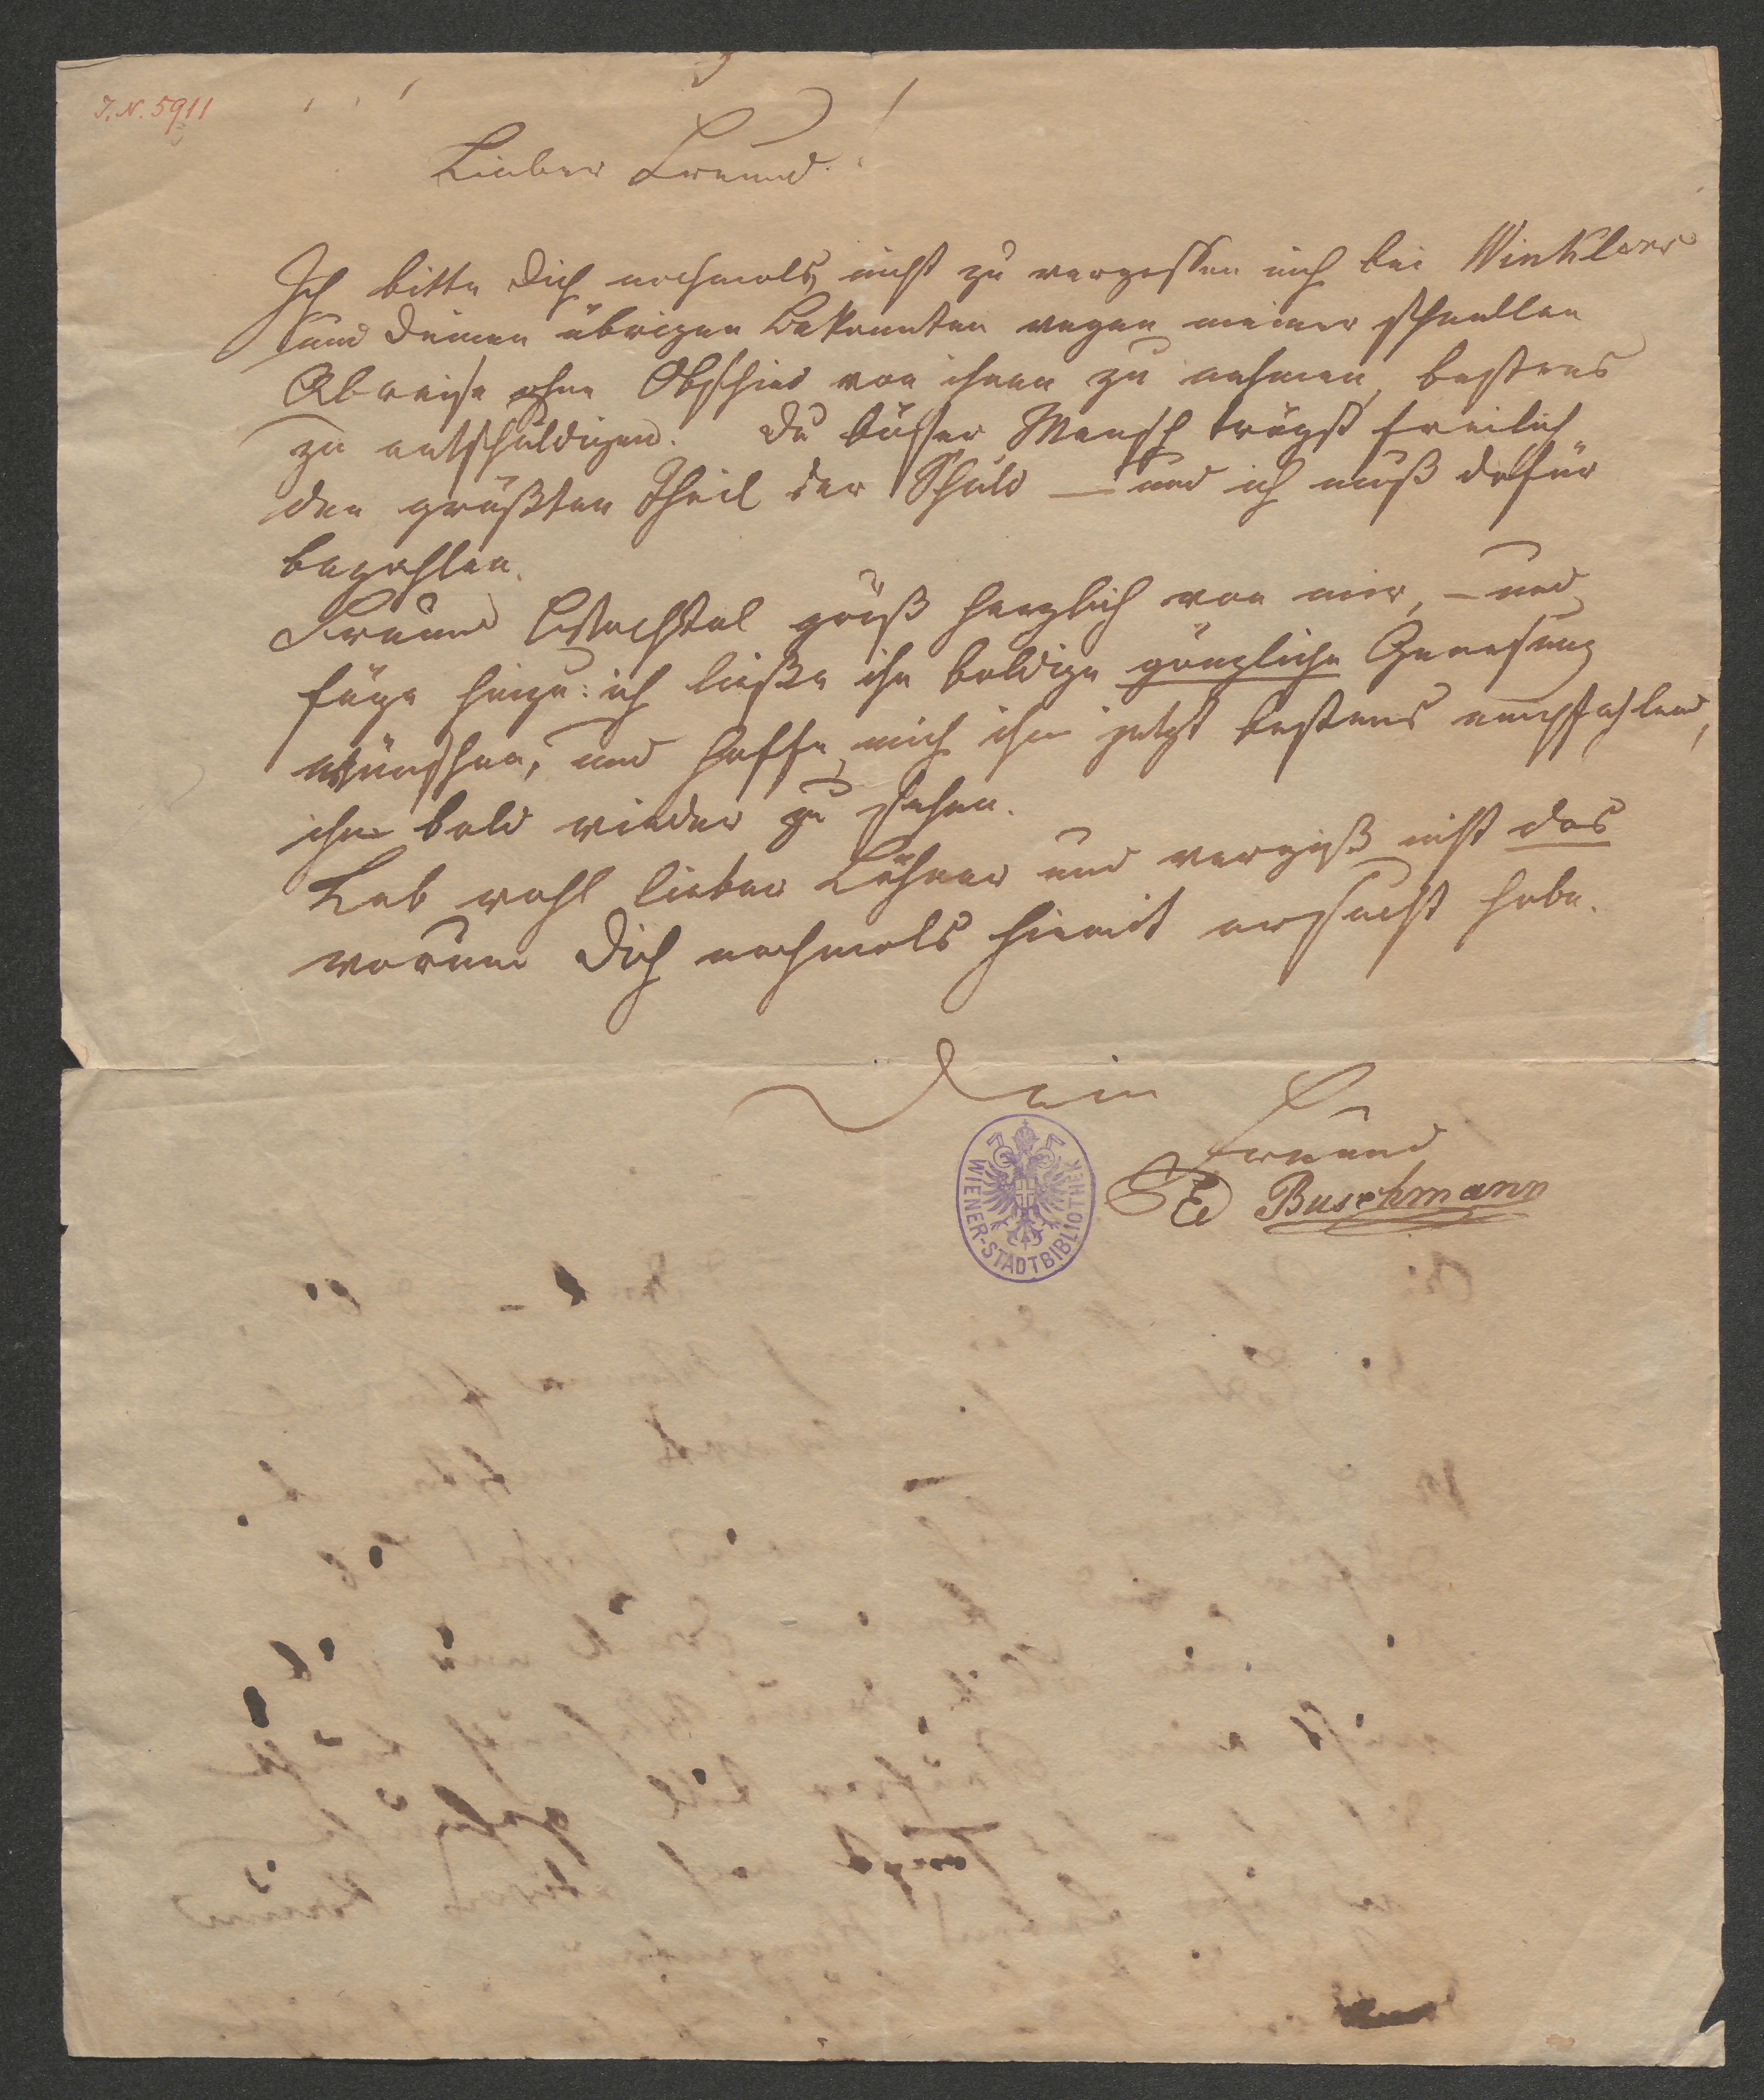 I. N. 5911
Lieber Freund!
Ich bitte dich nochmals, nicht zu vergessen mich bei Winklers
und deinen übrigen Bekannten wegen meiner schnellen
Abreise ohne Abschied von ihnen zu nehmen, bestens
zu entschuldigen. Du böser Mensch trägst freilich
den größten Theil der Schuld — und ich muß dafür
bezahlen.
Freund grüß herzlich von mir, – und
füge hinzu: ich ließe ihm baldige gänzliche Genesung
wünschen, und hoffe, mich ihm jetzt bestens empfehlend,
ihn bald wieder zu sehen.
Leb wohl lieber Löhner und vergiß nicht das
warum dich nochmals hiemit ersucht habe.
Dein
Freund
Ed Buschmann
WIENER-STADTBIBLIOTHEK